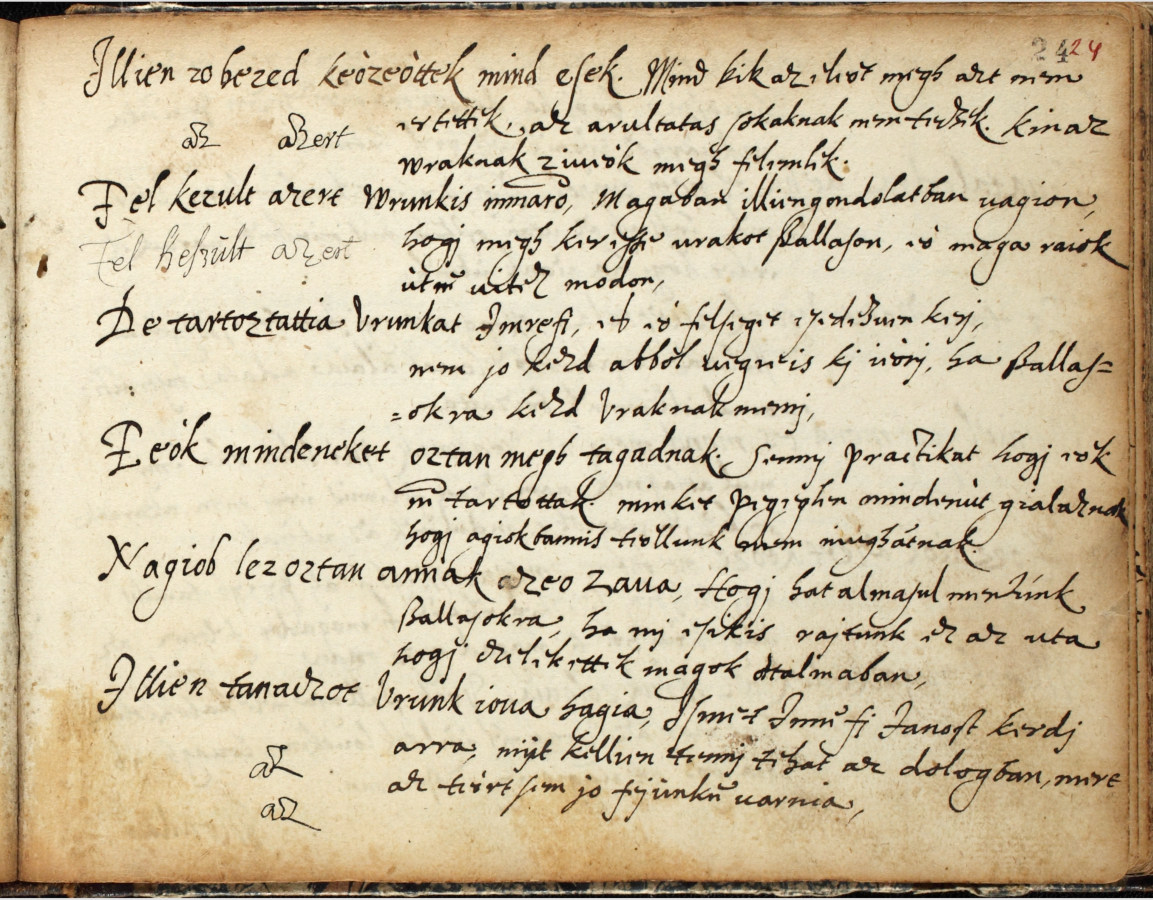 24 24
Illien zo bezed keòzeòttek mind esek. Mind kik az eleòt megh azt nem
ertettek, az arultatas sokaknak nem tedzik. kin az
az azert
wraknak ziueòk megh felemlik.
Fel kezult azert Wrunkis immarõ, Magaban illien gondolatban uagion,
Fel keszùlt azert
hogj megh keresse urakot Ballason, eò maga raiok
ùtm̃ uitez modon,
De tartoztattia Vrunkat Imrefi, es eò felseget esedezuen kerj,
nem jo kezd abbòl uegreis kj ieònj, ha Ballas=
=okra kezd Vraknak mennj,
Eeòk mindeneket oztan megh tagadnak. Sennij practikat hogj eòk
m̃ tartottak. minket pegeghen mindenùt gialaznak
hogj agiokbannis teòllunk nem niughatnak.
Nagiob lez oztan annak azeo Zaua, Hogj hatalmasul mentùnk
Ballasokra, ha mj esekis rajtunk ez az uta
hogj czelekettek magok otalmaban,
Illien tanaczot Vrunk ioua hagia, Ismet Imrefi Janost kerdj
arra, mijt kellien tennj tehat az dologban, mert
az
az teòrt sem jo fejùnkũ uarnia,
az